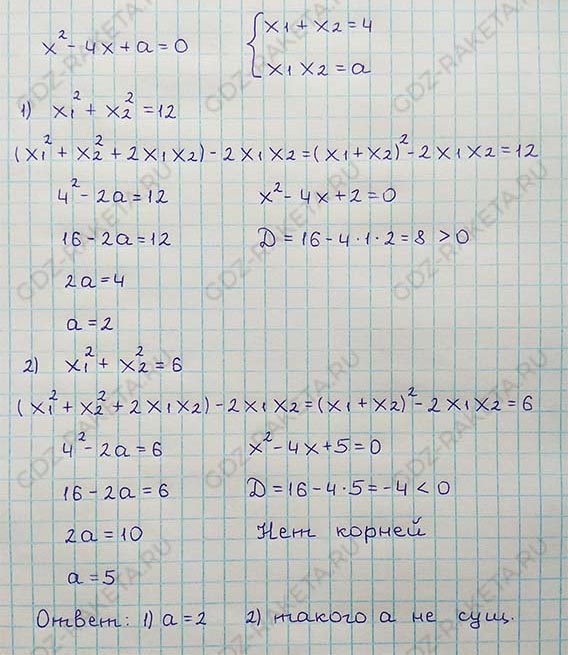 x² - 4x + a = 0
{ x1 + x2 = 4
x1 x2 = a
1) x1² + x2² = 12
(x1² + x2² + 2x1x2) - 2x1x2 = (x1 + x2)² - 2x1x2 = 12
4² - 2a = 12
x² - 4x + 2 = 0
16 - 2a = 12
D = 16 - 4·1·2 = 8 > 0
2a = 4
a = 2
2) x1² + x2² = 6
(x1² + x2² + 2x1x2) - 2x1x2 = (x1 + x2)² - 2x1x2 = 6
4² - 2a = 6
x² - 4x + 5 = 0
16 - 2a = 6
D = 16 - 4·5 = -4 < 0
2a = 10
Нет корней
a = 5
Ответ: 1) a = 2 2) такого а не сущ.
GDZ-RAKETA.RU